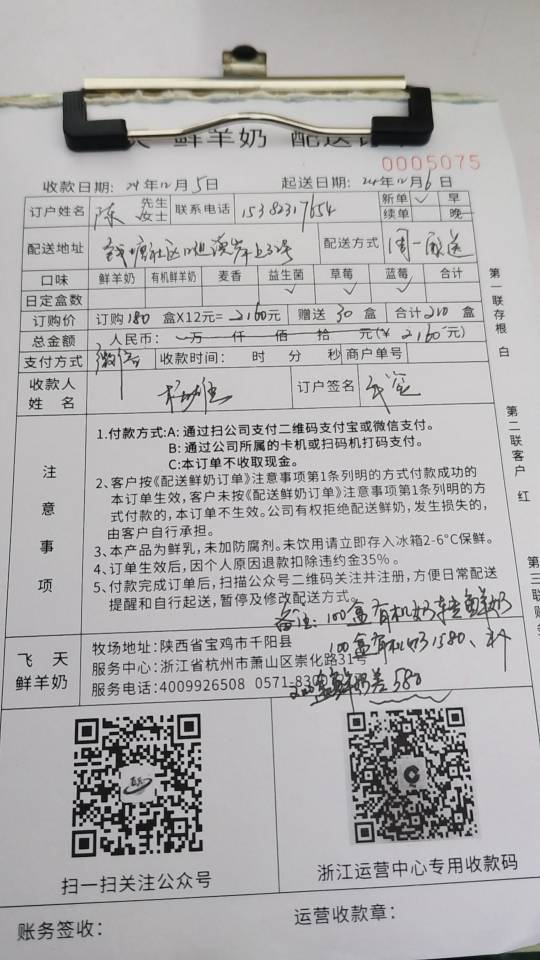 鲜羊奶 配送订单
0005075
收款日期: 24年12月5日 起送日期: 24年12月6日
订户姓名 陈 先生 女士 联系电话 15382317654 新单 ✓ 早
续单 晚
配送地址 配送方式 周一配送
口味 鲜羊奶 有机鲜羊奶 麦香 益生菌 草莓 蓝莓 合计
日定盒数 ✓ ✓ ✓
订购价 订购180盒X12元=2160元 赠送30盒 合计210盒
总金额 人民币: 万 仟 佰 拾 元(¥2160元)
支付方式 微信 收款时间: 时 分 秒 商户单号
收款人 姓名 订户签名
注意事项
1.付款方式:A: 通过扫公司支付二维码支付宝或微信支付。
B: 通过公司所属的卡机或扫码机打码支付。
C:本订单不收取现金。
2、客户按《配送鲜奶订单》注意事项第1条列明的方式付款成功的
本订单生效,客户未按《配送鲜奶订单》注意事项第1条列明的方
式付款的,本订单不生效。公司有权拒绝配送鲜奶,发生损失的,
由客户自行承担。
3、本产品为鲜乳,未加防腐剂。未饮用请立即存入冰箱2-6°C保鲜。
4、订单生效后,因个人原因退款扣除违约金35%。
5、付款完成订单后,扫描公众号二维码关注并注册,方便日常配送
提醒和自行起送,暂停及修改配送方式。
备注: 100盒有机奶转鲜奶
100盒有机奶1580、补
差580
飞天
鲜羊奶
牧场地址:陕西省宝鸡市千阳县
服务中心:浙江省杭州市萧山区崇化路31号
服务电话:4009926508 0571-83
第一联存根 白
第二联客户 红
第三联
扫一扫关注公众号
浙江运营中心专用收款码
账务签收:
运营收款章: